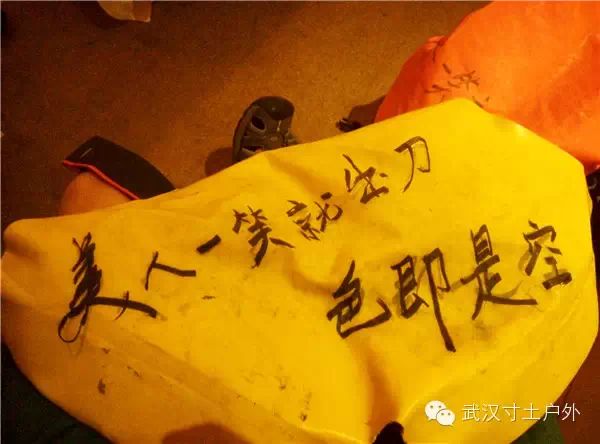 美人一笑就出刀
色即是空
武汉寸土户外